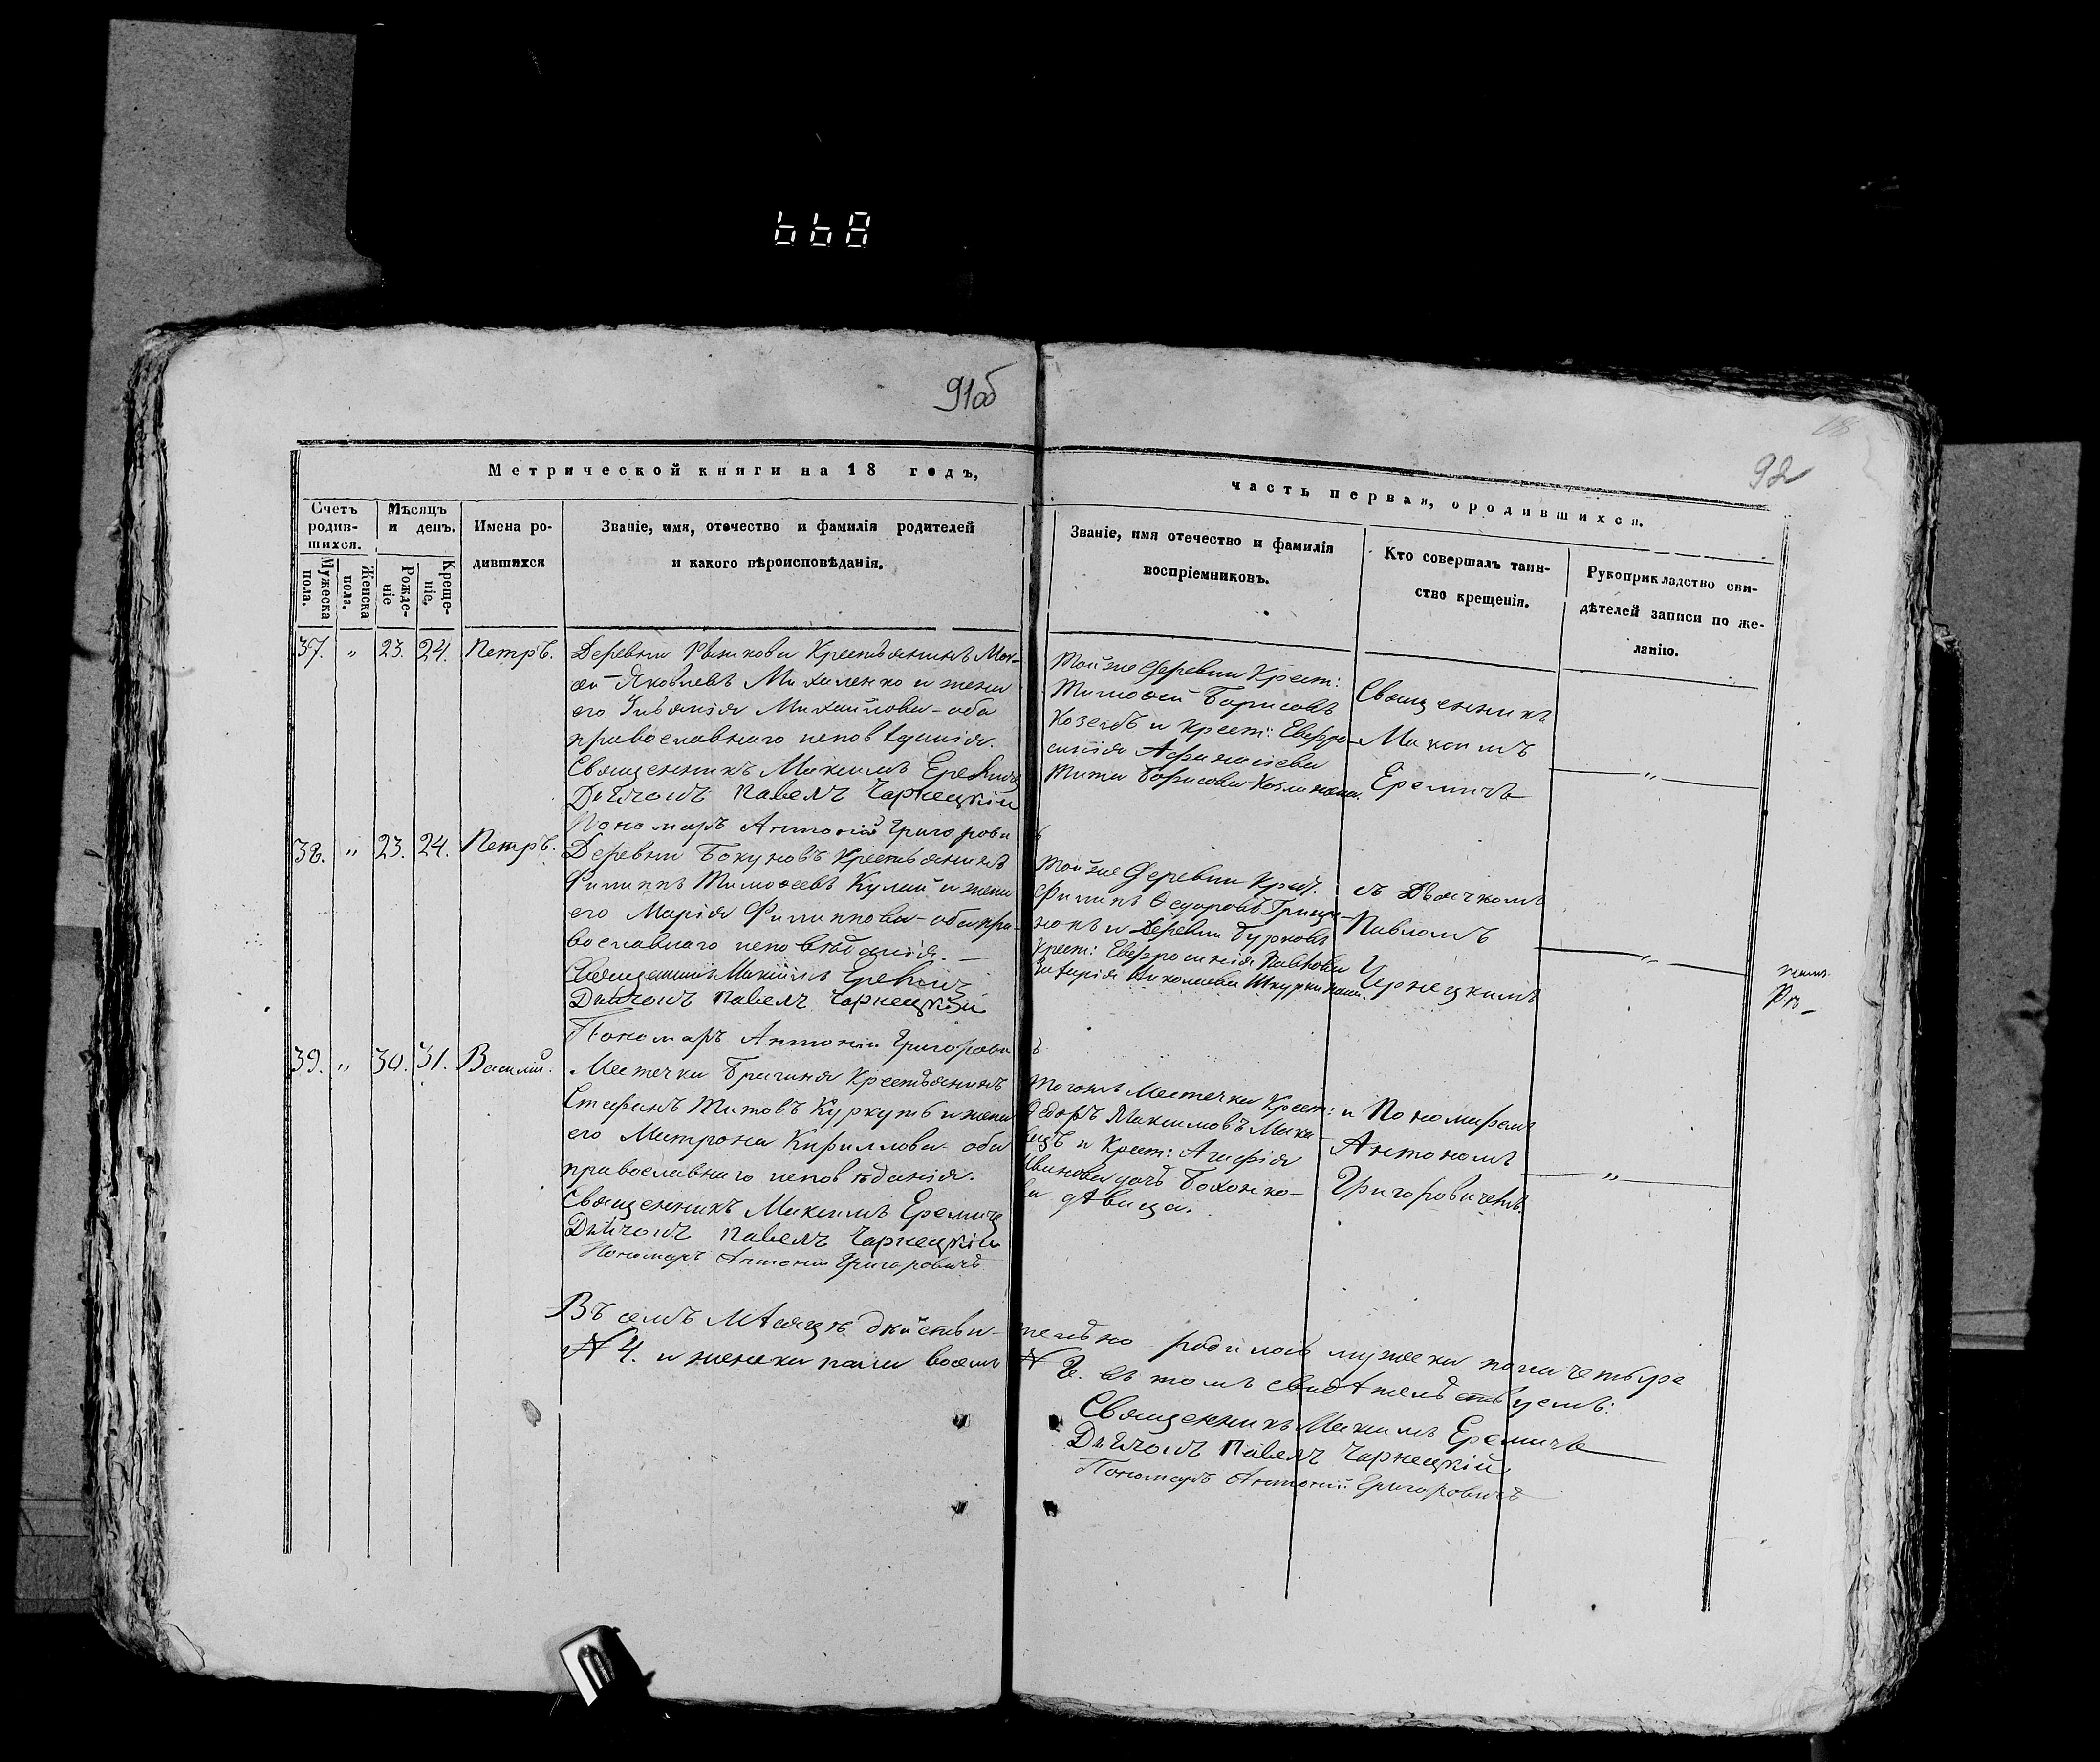 91об
92
Метрической книги на 18 годъ,
часть первая, ородившихся.
Счетъ родив-
шихся.
Мужеска пола.
Женска пола.
Мѣсяцъ и день.
Рожде-
ніе
Креще-
ніе,
Имена ро-
дившихся
Званіе, имя, отечество и фамилія родителей
и какого вѣроисповѣданія.
Званіе, имя отечество и фамилія
воспріемниковъ.
Кто совершалъ таин-
ство крещенія.
Рукоприкладство сви-
дѣтелей записи по же-
ланію.
37. " 23. 24. Петръ.
Деревни Крестьянинъ Мок-
ей Яковлевъ Михаленко и жена
его Михайлова - оба
православнаго исповѣданія.
Священникъ Максимъ Еремичъ
Дьячокъ Павелъ Чарнецкій
Пономаръ Антоній Григорович
ъ
Той же деревни Крест:
Тимоѳей Борисовъ
Козелъ и Крест: Евфро-
синія Афанасіева
Тита Борисова Козла жена.
Священникъ
Максимъ
Еремичъ
"
38. " 23. 24. Петръ.
Деревни Бокуновъ Крестьянинъ
Филиппъ Тимоѳеевъ Кулай и жена
его Марія Филиппова - оба пра-
вославнаго исповѣданія. -
Священникъ Максимъ Еремичъ
Дьячокъ Павелъ Чарнецкій
Пономаръ Антоній Григорович
ъ
Той же деревни Крест.
Филипъ Ѳедоровъ Грище-
нокъ и деревни Бурковъ
Крест: Евфросинія Павлова
Николаева Шкурки жена.
съ Дьячкомъ
Павломъ
Чернецкимъ
"
39. " 30. 31. Василій.
Местечка Брагиня Крестьянинъ
Стефанъ Титовъ Куркуть и жена
его Матрона Кириллова оба
православнаго исповѣданія.
Священникъ Максимъ Еремичъ
Дьячокъ Павелъ Чарнецкій
Пономаръ Антоній Григоровичъ
Тогожъ Местечка Крест:
Ѳедоръ Максимовъ
и Крест: Агафія
Иванова дочь
дѣвица.
и Пономаремъ
Антономъ
Григоровичемъ.
"
Въ семъ мѣсяцѣ дѣйстви-
тельно родилось мужеска пола четыре
№ 4. и женска пола восемь
№ 8. въ томъ свидѣтельствуемъ:
Священникъ Максимъ Еремичъ
Дьячокъ Павелъ Чарнецкій
Пономаръ Антоній Григоровичъ